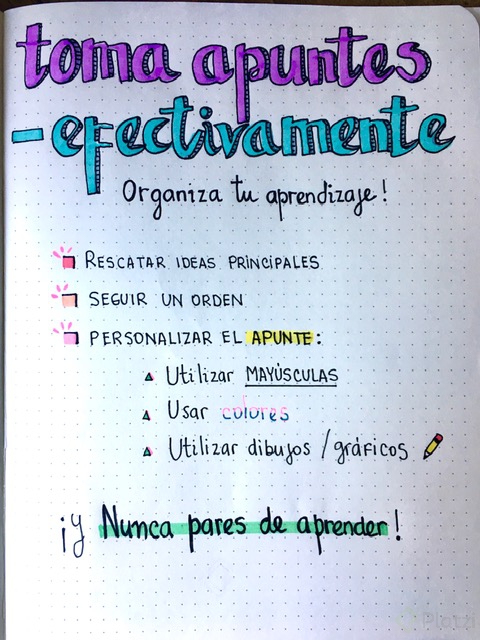 toma apuntes
-efectivamente
Organiza tu aprendizaje!
RESCATAR IDEAS PRINCIPALES
SEGUIR UN ORDEN
PERSONALIZAR EL APUNTE:
Utilizar MAYÚSCULAS
Usar colores
Utilizar dibujos / gráficos
¡y Nunca pares de aprender!
Platzi